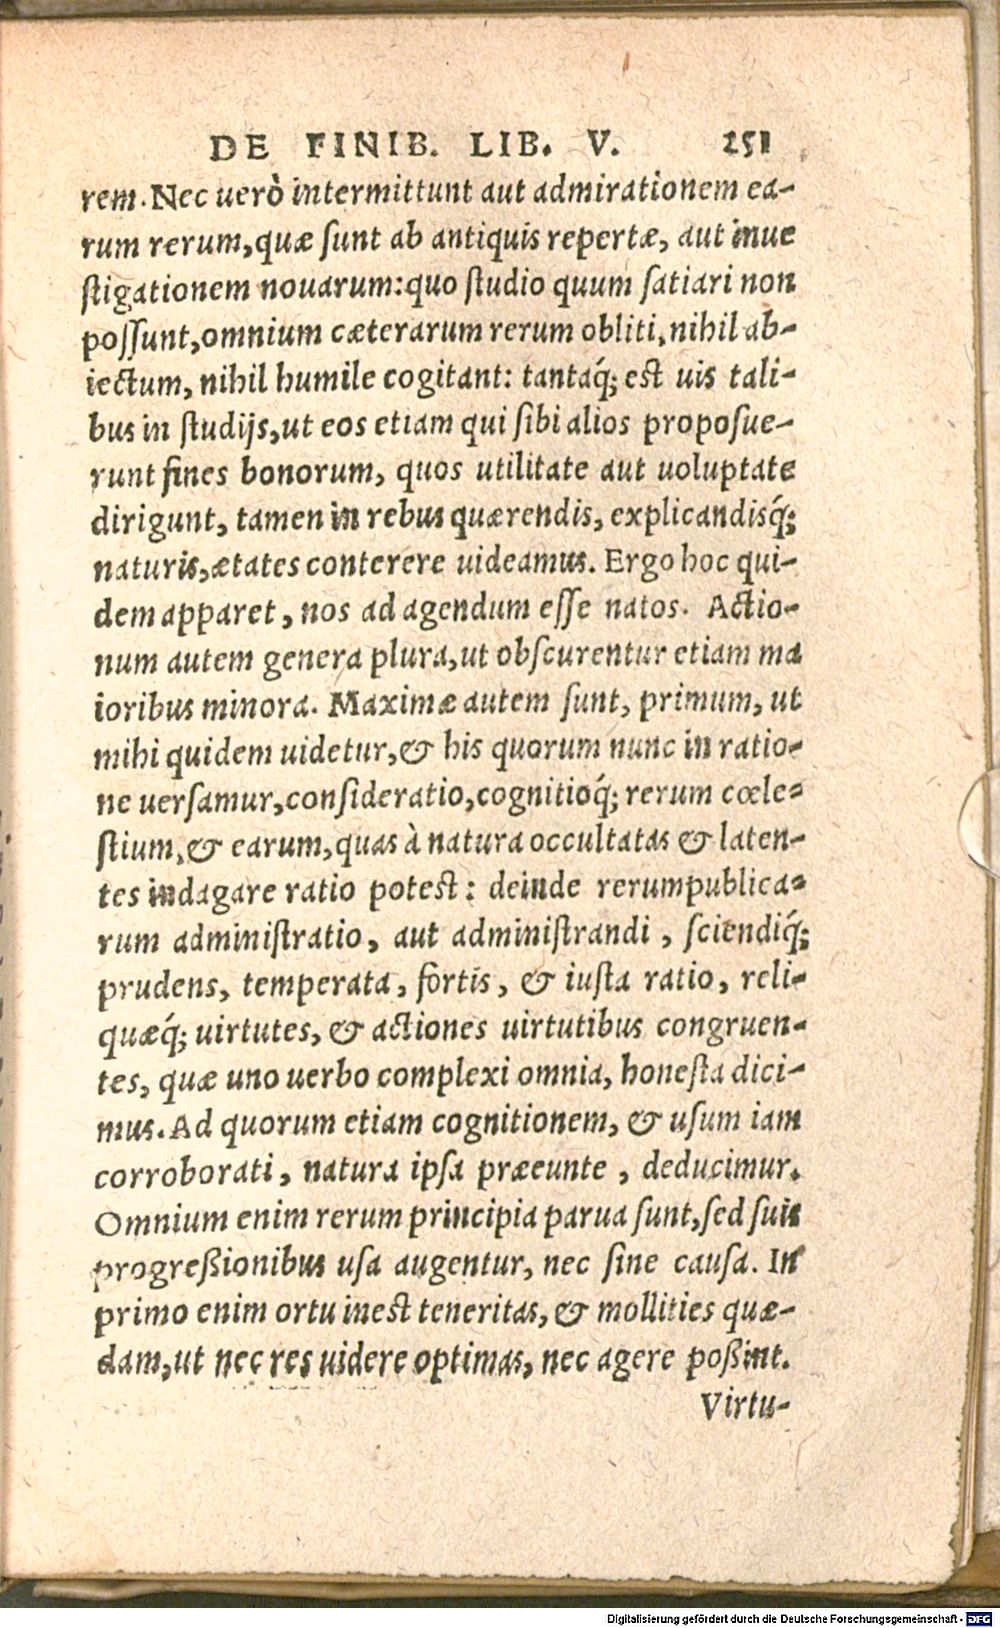 DE FINIB. LIB. V. 251
rem. Nec uerò intermittunt aut admirationem ea-
rum rerum, quæ ſunt ab antiquis repertæ, aut inue
ſtigationem nouarum: quo ſtudio quum ſatiari non
poſſunt, omnium cæterarum rerum obliti, nihil ab-
iectum, nihil humile cogitant: tantaq́; eſt uis tali-
bus in ſtudijs, ut eos etiam qui ſibi alios propoſue-
runt fines bonorum, quos utilitate aut uoluptate
dirigunt, tamen in rebus quærendis, explicandisq́;
naturis, ætates conterere uideamus. Ergo hoc qui-
dem apparet, nos ad agendum eſſe natos. Actio-
num autem genera plura, ut obſcurentur etiam ma
ioribus minora. Maximæ autem ſunt, primum, ut
mihi quidem uidetur, & his quorum nunc in ratio-
ne uerſamur, conſideratio, cognitioq́; rerum cœle-
ſtium, & earum, quas à natura occultatas & laten-
tes indagare ratio poteſt: deinde rerumpublica-
rum adminiſtratio, aut adminiſtrandi, ſciendiq́;
prudens, temperata, fortis, & iuſta ratio, reli-
quæq́; uirtutes, & actiones uirtutibus congruen-
tes, quæ uno uerbo complexi omnia, honeſta dici-
mus. Ad quorum etiam cognitionem, & uſum iam
corroborati, natura ipſa præeunte, deducimur.
Omnium enim rerum principia parua ſunt, ſed ſuis
progreßionibus uſa augentur, nec ſine cauſa. In
primo enim ortu ineſt teneritas, & mollities quæ-
dam, ut nec res uidere optimas, nec agere poßint.
Virtu-
Digitalisierung gefördert durch die Deutsche Forschungsgemeinschaft - DFG